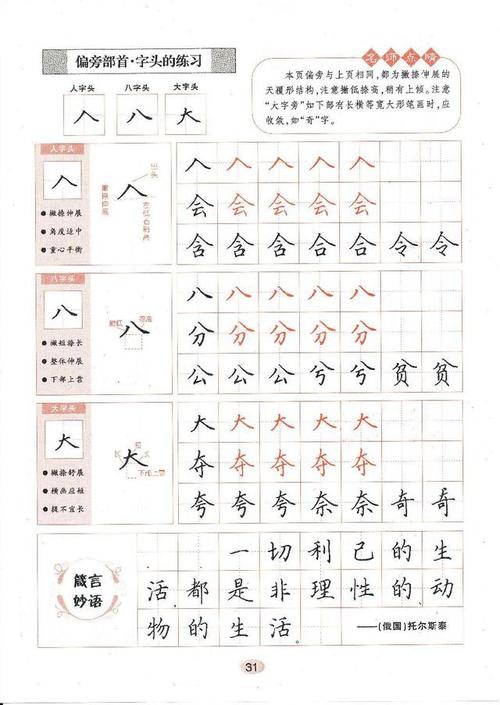 偏旁部首·字头的练习
人字头 八字头 大字头
人 八 大
名师点睛
本页偏旁与上页相同,都为撇捺伸展的
天覆形结构,注意撇低捺高,稍有上倾。注意
“大字旁”如下部有长横等宽大形笔画时,应
收敛,如“奇”字。
人字头
人
撇捺伸展
角度适中
重心平衡
人
出头
撇捺伸展
左低右稍高
人 人 人 人 人
会 会 会 会 会
含 含 合 合 令 令
八字头
八
撇短捺长
整体伸展
下部上营
八
撇低
捺高
八 八 八 八 八
分 分 分 分 分
公 公 兮 兮 贫 贫
大字头
大
撇捺舒展
横画应短
捺不宜长
大
短
长
下部上营
大 大 大 大 大
夺 夺 夺 夺 夺
夸 夸 奈 奈 奇 奇
箴言
妙语
一切利己的生
活都是非理性的动
物的生活。
——(俄国)托尔斯泰
31